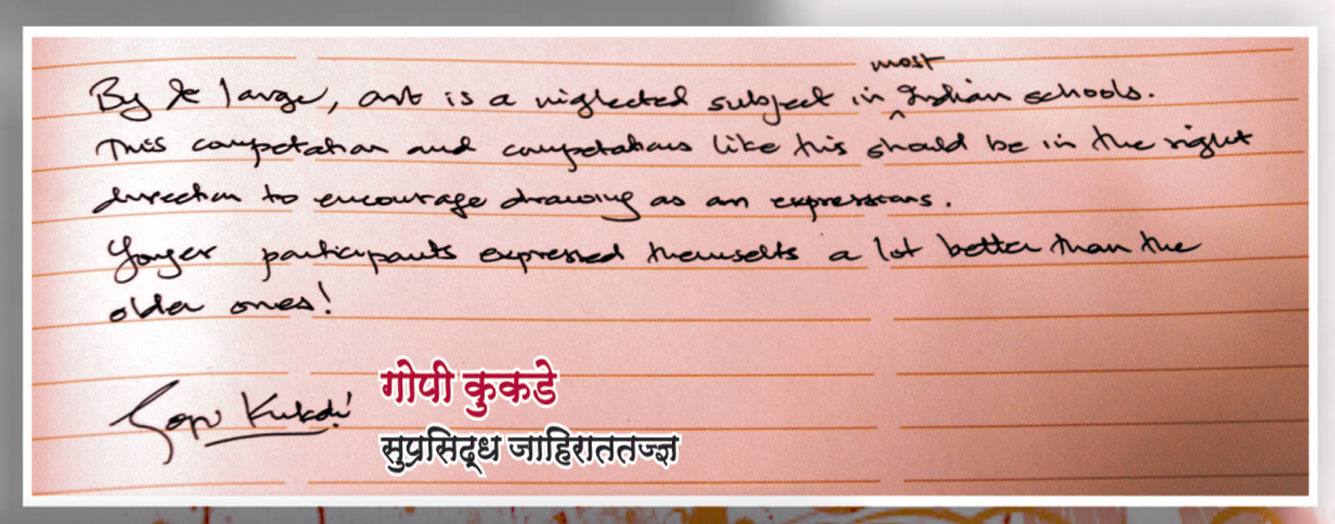 By & large, art is a niglected subject in most Indian schools.
This competation and competations like this should be in the right
direction to encourage drawing as an expressions.
Yonger participants expressed themselts a lot better than the
older ones!
Gopi Kukde
गोपी कुकडे
सुप्रसिद्ध जाहिराततज्ज्ञ